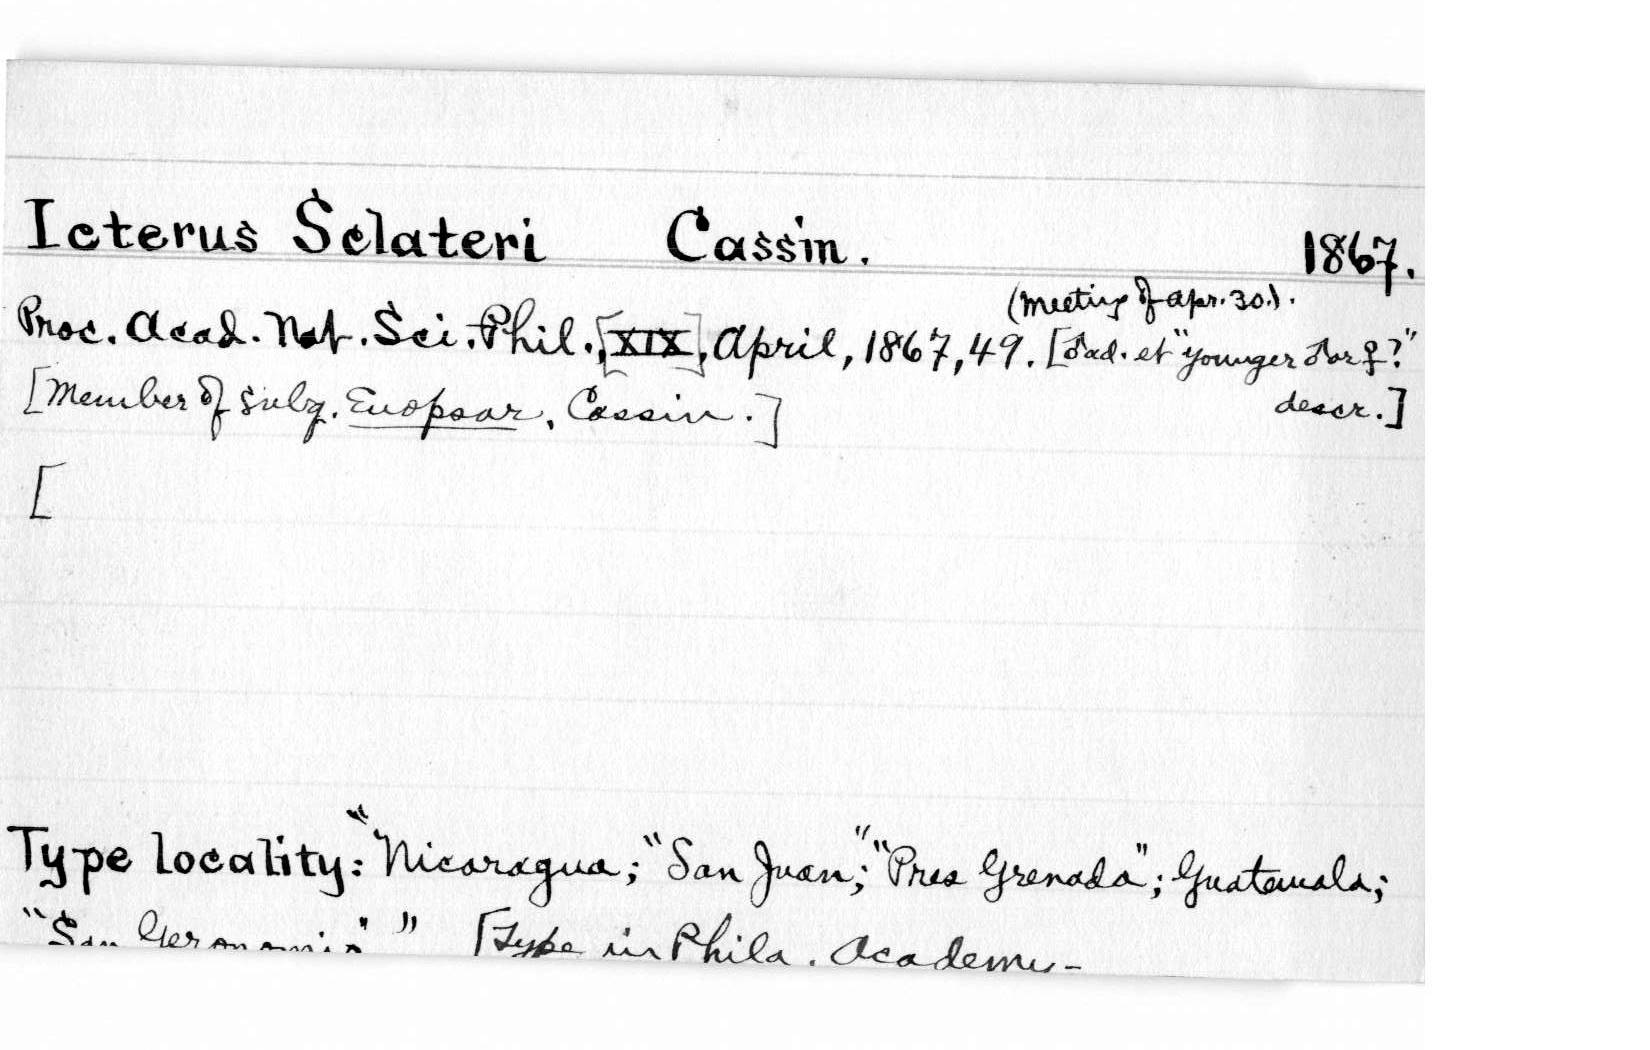 Icterus Sclateri Cassin. 1867.
(meeting of Apr. 30.).
Proc. Acad. Nat. Sci. Phil., [XIX], April, 1867, 49. [♂ad. et "younger ♂ or ♀?"
[Member of subg. Euopsar, Cassin.] descr.]
[
Type locality: "Nicaragua; "San Juan;" "Pres Grenada"; Guatemala;
"San Geronomio" " [Type in Phila. Academy-